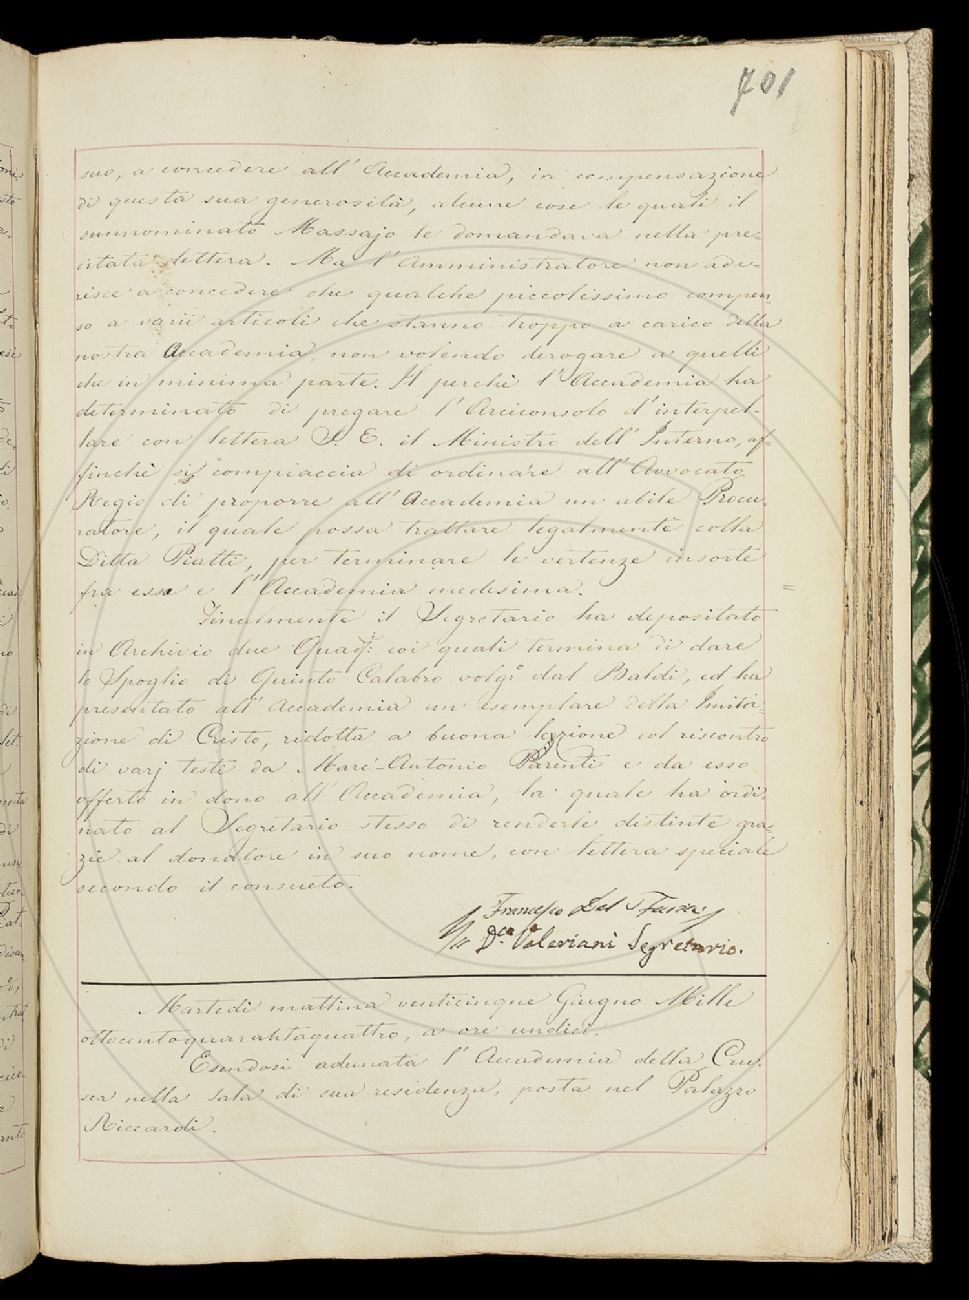 701
suo, a concedere all'Accademia, in compensazione
di questa sua generosità, alcune cose le quali il
sunnominato Massajo le domandava nella pre-
citata lettera. Ma l'Amministratore non ade-
risce a concedere che qualche piccolissimo compen-
so a varii articoli che stanno troppo a carico della
nostra Accademia, non volendo derogare a quelli
che in minima parte. Il perchè l'Accademia ha
determinato di pregare l'Arciconsolo d'interpel-
lare con lettera S. E. il Ministro dell'Interno, af-
finchè si compiaccia di ordinare all'Avvocato
Regio di proporre all'Accademia un abile Procu-
ratore, il quale possa trattare legalmente colla
Ditta Piatti, per terminare le vertenze insorte
fra essa e l'Accademia medesima.
Finalmente il Segretario ha depositato
in Archivio due Quad.i: coi quali termina di dare
lo Spoglio di Quinto Calabro volg.o dal Baldi, ed ha
presentato all'Accademia un esemplare della Imita-
zione di Cristo, ridotta a buona lezione col riscontro
di varj testi da Marc'-Antonio Parenti e da esso
offerto in dono all'Accademia, la quale ha ordi-
nato al Segretario stesso di renderle distinte gra-
zie al donatore in suo nome, con lettera speciale
secondo il consueto.
Francesco Del Furia
D.co Valeriani Segretario.
Martedì mattina venticinque Giugno Mille
ottocentoquarantaquattro, a ore undici.
Esendosi adunata l'Accademia della Cru-
sca nella sala di sua residenza, posta nel Palazzo
Riccardi.